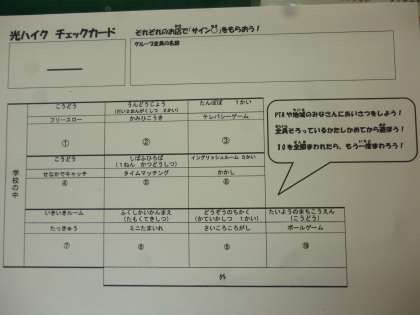 光ハイク チェックカード
それぞれのお店で「サイン」をもらおう！
グループ全員の名前
こうどう
うんどうじょう
たんぽぽ 1かい
フリースロー
かみひこうき
テレパシーゲーム
① ② ③
こうどう
しばふひろば
イングリッシュルーム 2かい
(1ねん かつどうしつ)
せなかでキャッチ
タイムマッチング
かかし
④ ⑤ ⑥
いきいきルーム
ふくしかいかんまえ
どうぞうのちかく
たいようのまちこうえん
(たもくてきしつ)
(かていかしつ 1かい)
(こうどう)
たっきゅう
ミニたまいれ
さいころころがし
ボールゲーム
⑦ ⑧ ⑨ ⑩
外
PTAや地域のみなさんにあいさつをしよう！
全員そろっているかたしかめてから遊ぼう！
10を全部まわれたら、もう一度まわろう！